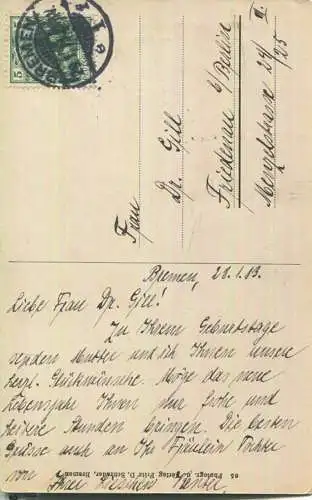 BREMEN
5
Frau
Dr. Gill
Friedenau b/Berlin
II.
Bremen, 28.1.13.
Liebe Frau Dr. Gill!
Zu Ihrem Geburtstage
senden Mutter und ich Ihnen unsere
herzl. Glückwünsche. Möge das neue
Lebensjahr Ihnen nur frohe und
heitere Stunden bringen. Die besten
Grüsse auch an Ihr Fräulein Tochter
von Ihrer
Verlag Peter D. Schröder, Bremen